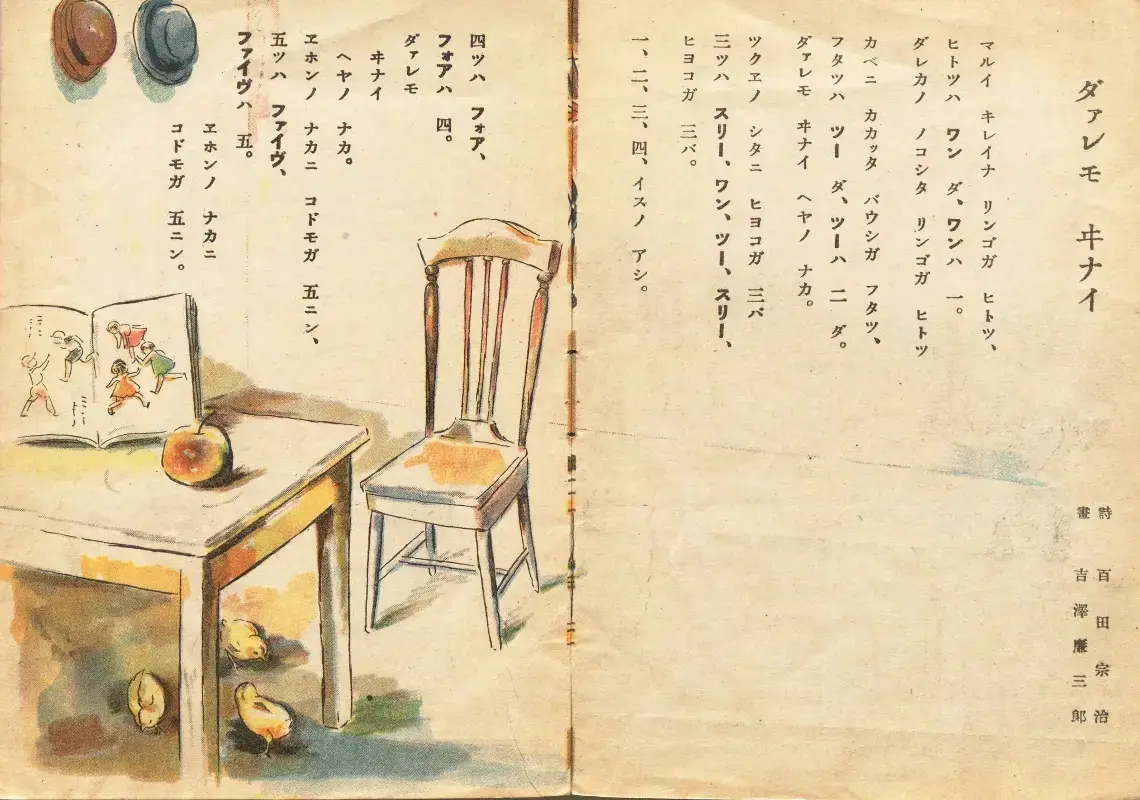 ダァレモ ヰナイ
詩 百田宗治
畫 吉澤廉三郎
マルイ キレイナ リンゴガ ヒトツ、
ヒトツハ ワン ダ、ワンハ 一。
ダレカノ ノコシタ リンゴガ ヒトツ
カベニ カカッタ バウシガ フタツ、
フタツハ ツー ダ、ツーハ 二 ダ。
ダァレモ ヰナイ ヘヤノ ナカ。
ツクヱノ シタニ ヒヨコガ 三バ
三ツハ スリー、ワン、ツー、スリー、
ヒヨコガ 三バ。
一、二、三、四、イスノ アシ。
四ツハ フォア、
フォアハ 四。
ダァレモ
ヰナイ
ヘヤノ ナカ。
ヱホンノ ナカニ コドモガ 五ニン、
五ツハ ファイヴ、
ファイヴハ 五。
ヱホンノ ナカニ
コドモガ 五ニン。